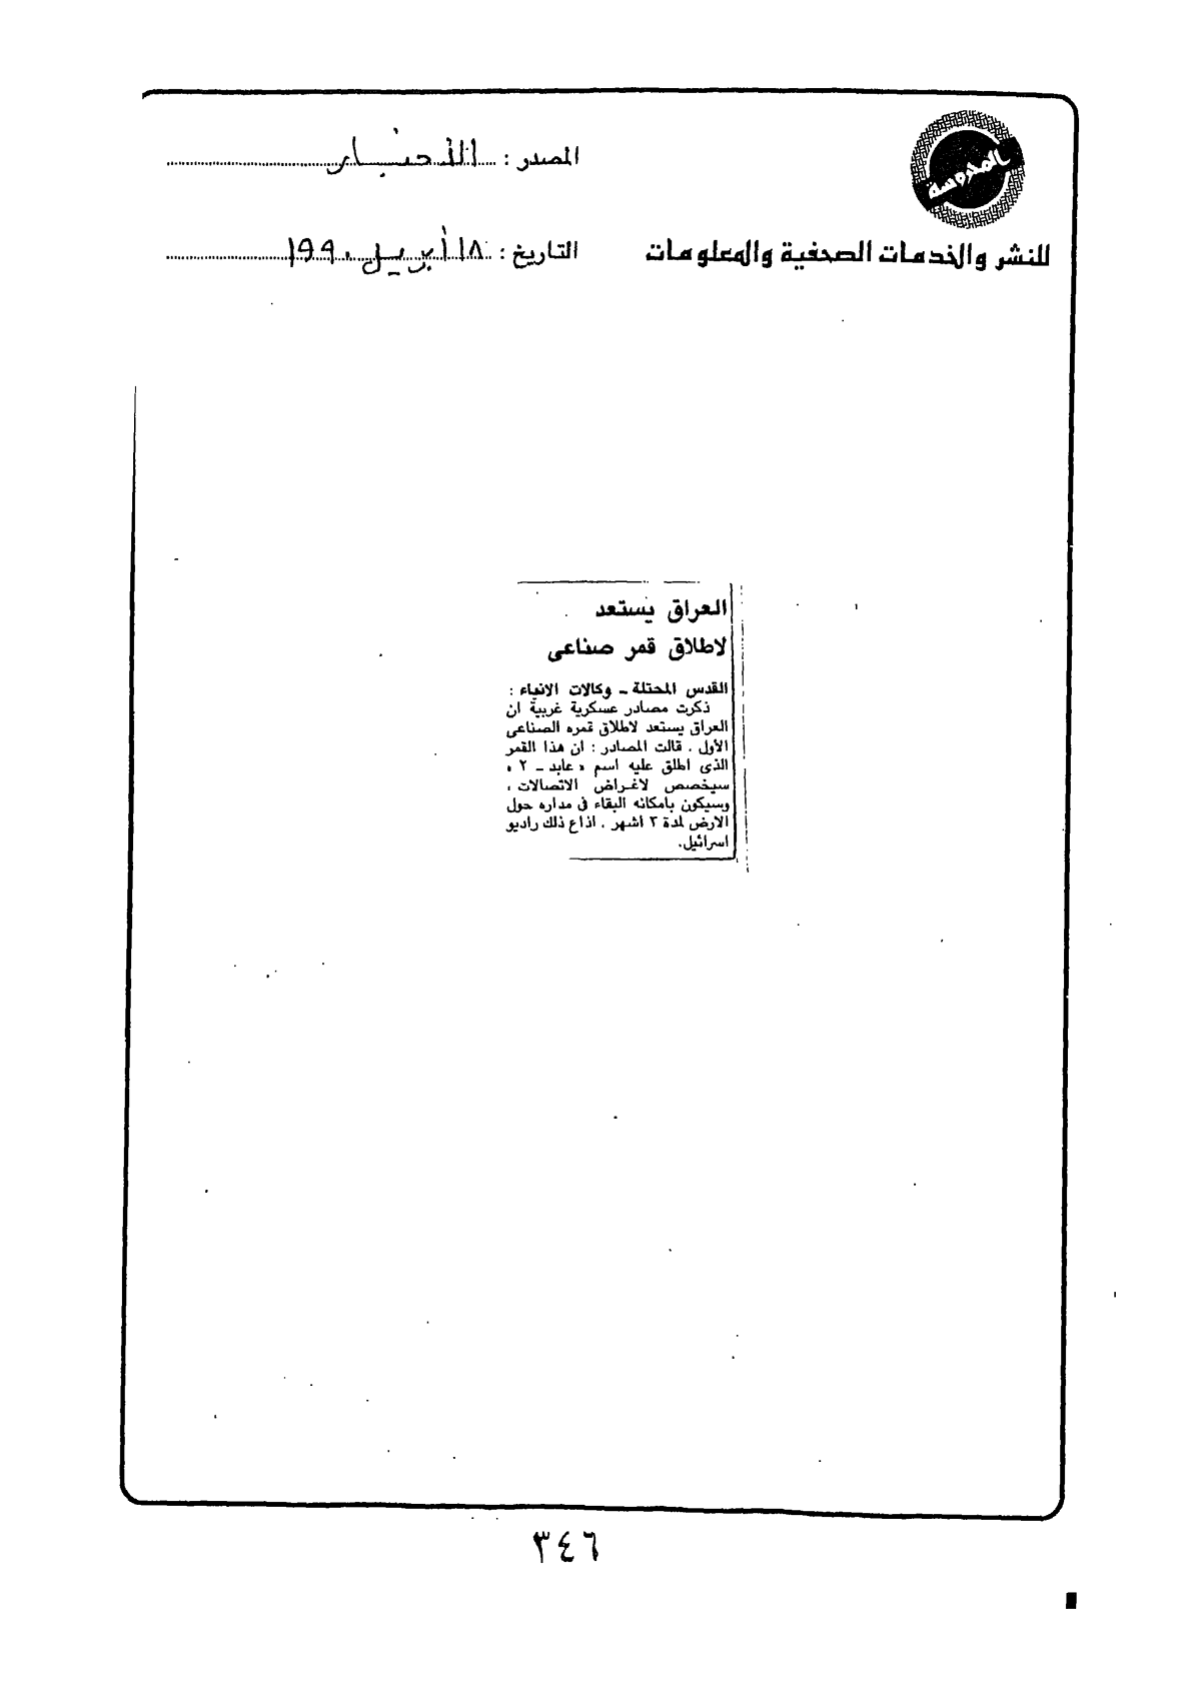 المحروسة
للنشر والخدمات الصحفية والمعلومات
المصدر : الأخبار
التاريخ : ١٨ أبريل ١٩٩٠
العراق يستعد
لاطلاق قمر صناعى
القدس المحتلة ـ وكالات الانباء :
ذكرت مصادر عسكرية غربية ان
العراق يستعد لاطلاق قمره الصناعى
الأول . قالت المصادر : ان هذا القمر
الذى اطلق عليه اسم « عابد ـ ٢ »
سيخصص لاغراض الاتصالات ،
وسيكون بامكانه البقاء فى مداره حول
الارض لمدة ٣ اشهر . اذاع ذلك راديو
اسرائيل.
٣٤٦